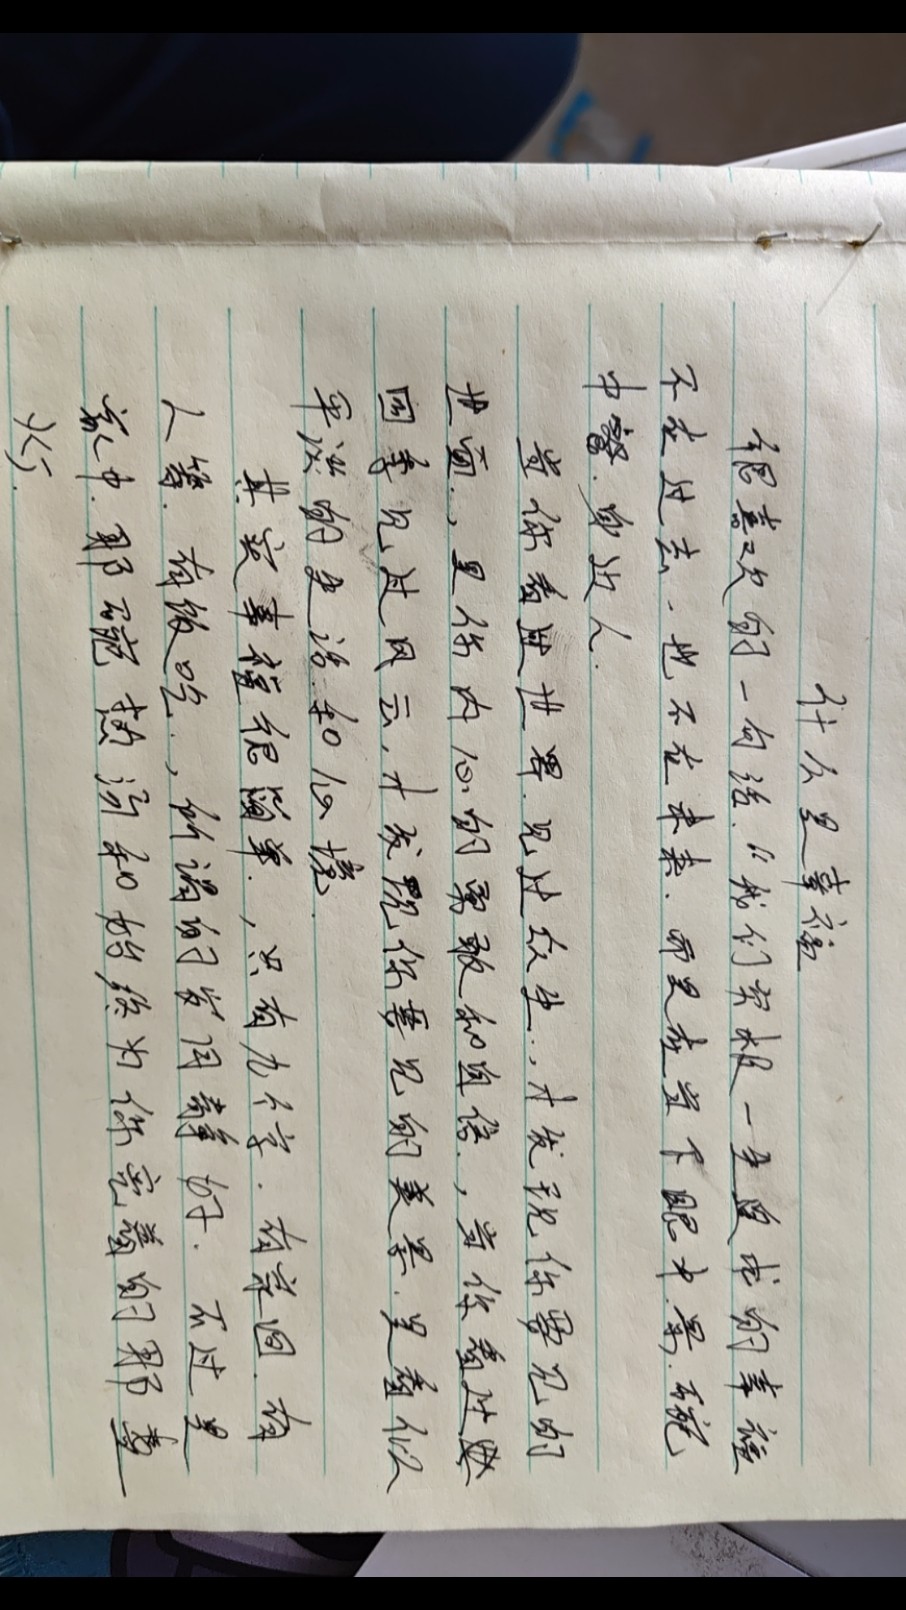 什么是幸福
很喜欢的一句话.“我们穷极一生追求的幸福
不在过去.也不在未来.而是在当下眼中景.碗
中餐.身边人.
当你看遍世界.见过众生.,才发现你要见的
世面.,是你内心的勇敢和自信.,当你看过
回季见过风云,才发现你喜见的美景.是看似
平淡的生活.和心境.
其实幸福很简单.,只有九个字.有家回.有
人等.有饭吃.,所谓的岁月静好.不过是
家中.那碗热汤和始终为你亮着的那盏
火丁.